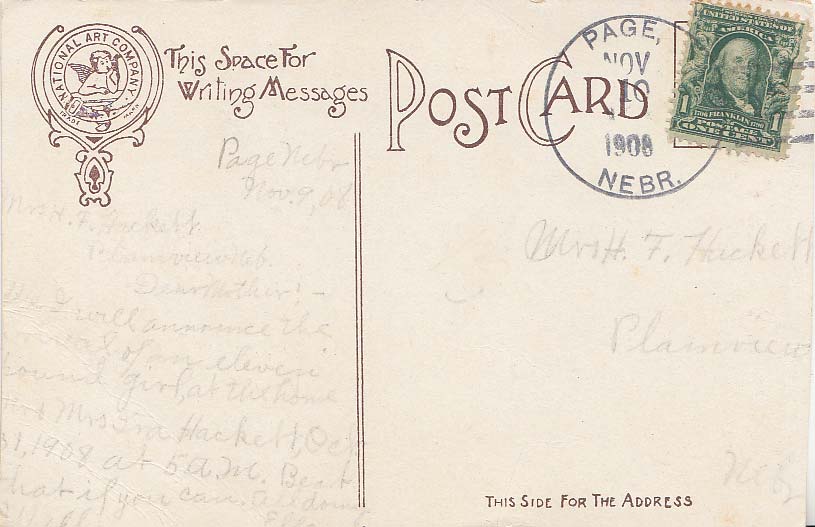 NATIONAL ART COMPANY
This Space For
Writing Messages
POST CARD
PAGE,
NOV
1908
NEBR.
UNITED STATES OF
AMERICA
1
1706 FRANKLIN 1790
1
POSTAGE
ONE CENT
Page Nebr
Nov. 9, 08
Mrs H. F. Hackett
Plainview Neb.
Dear Mother: -
I will announce the
of an eleven
pound girl, at the home
Mrs Ira Hackett, Oct
31, 1908 at 5 A.M. Beat
that if you can. All doing
Mrs H. F. Hackett
Plainview
Nebr
THIS SIDE FOR THE ADDRESS